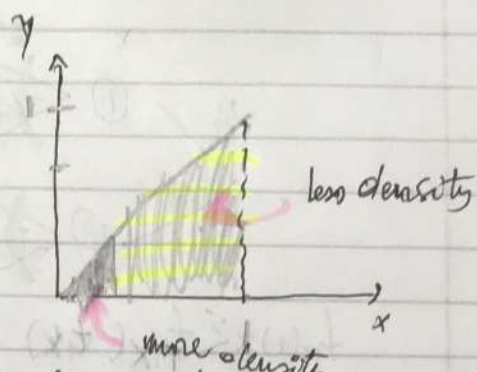 y
1
less density
x
more density